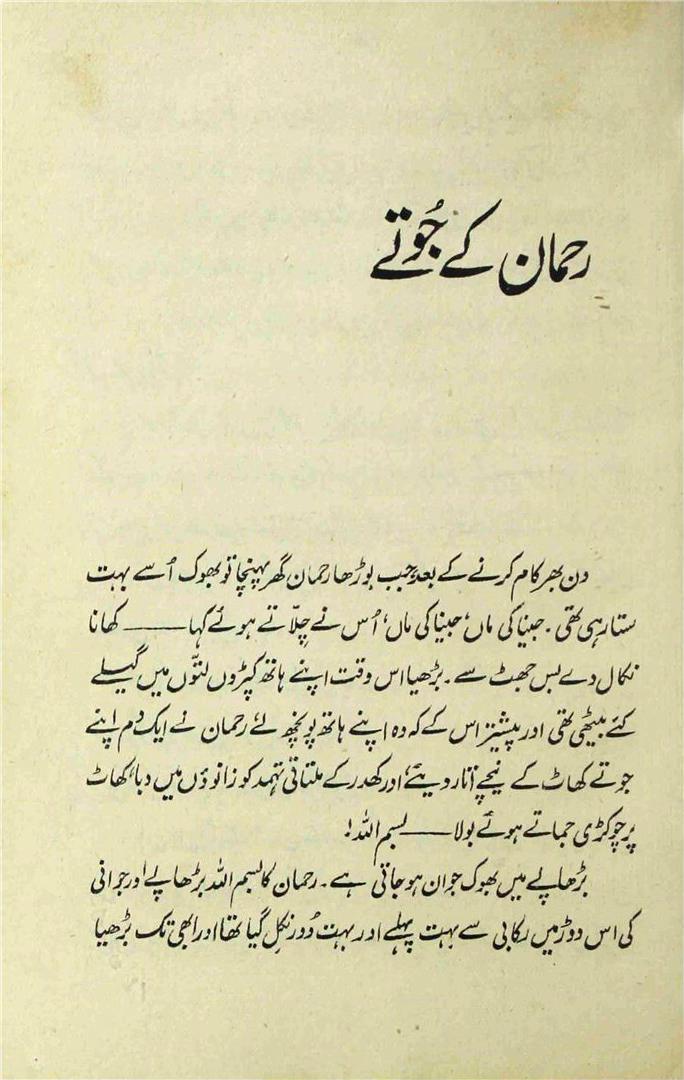 رحمان کے جُوتے
دن بھر کام کرنے کے بعد جب بوڑھا رحمان گھر پہنچا تو بھوک اُسے بہت
ستا رہی تھی۔ جینا کی ماں، جینا کی ماں، اُس نے چلّاتے ہوئے کہا —— کھانا
نکال دے بس جھٹ سے۔ بڑھیا اس وقت اپنے ہاتھ کپڑوں لتّوں میں گیلے
کئے بیٹھی تھی اور پیشتر اس کے کہ وہ اپنے ہاتھ پونچھ لے، رحمان نے ایک دم اپنے
جوتے کھاٹ کے نیچے اُتار دیئے، اور کھدر کے ملتانی تہمد کو زانوؤں میں دبا، کھاٹ
پر چوکڑی جماتے ہوئے بولا —— بسم اللہ!
بڑھاپے میں بھوک جوان ہو جاتی ہے۔ رحمان کا بسم اللہ بڑھاپے اور جوانی
کی اس دوڑ میں رکابی سے بہت پہلے اور بہت دُور نکل گیا تھا اور ابھی تک بڑھیا